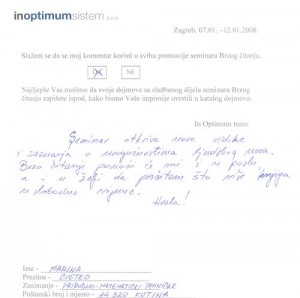 inoptimumsistem d.o.o.
Zagreb, 07.01. -12.01.2008.
Slažem se da se moj komentar koristi u svrhu promocije seminara Brzog čitanja.
DA NE
Najljepše Vas molimo da svoje dojmove sa službenog dijela seminara Brzog
čitanja zapišete ispod, kako bismo Vaše impresije uvrstili u katalog dojmova.
In Optimum team
Seminar otkriva nove vidike
i saznanja o mogućnostima ljudskog uma.
Brzo čitanje pomoći će mi i u poslu,
a i u želji da pročitam što više knjiga
u slobodno vrijeme.
Hvala!
Ime - MARINA
Prezime - CVETKO
Zanimanje - PRIRODNO-MATEMATIČKI TEHNIČAR
Poštanski broj i mjesto - 44 320 KUTINA